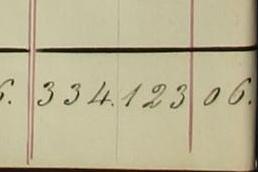 6. 334.123 06.